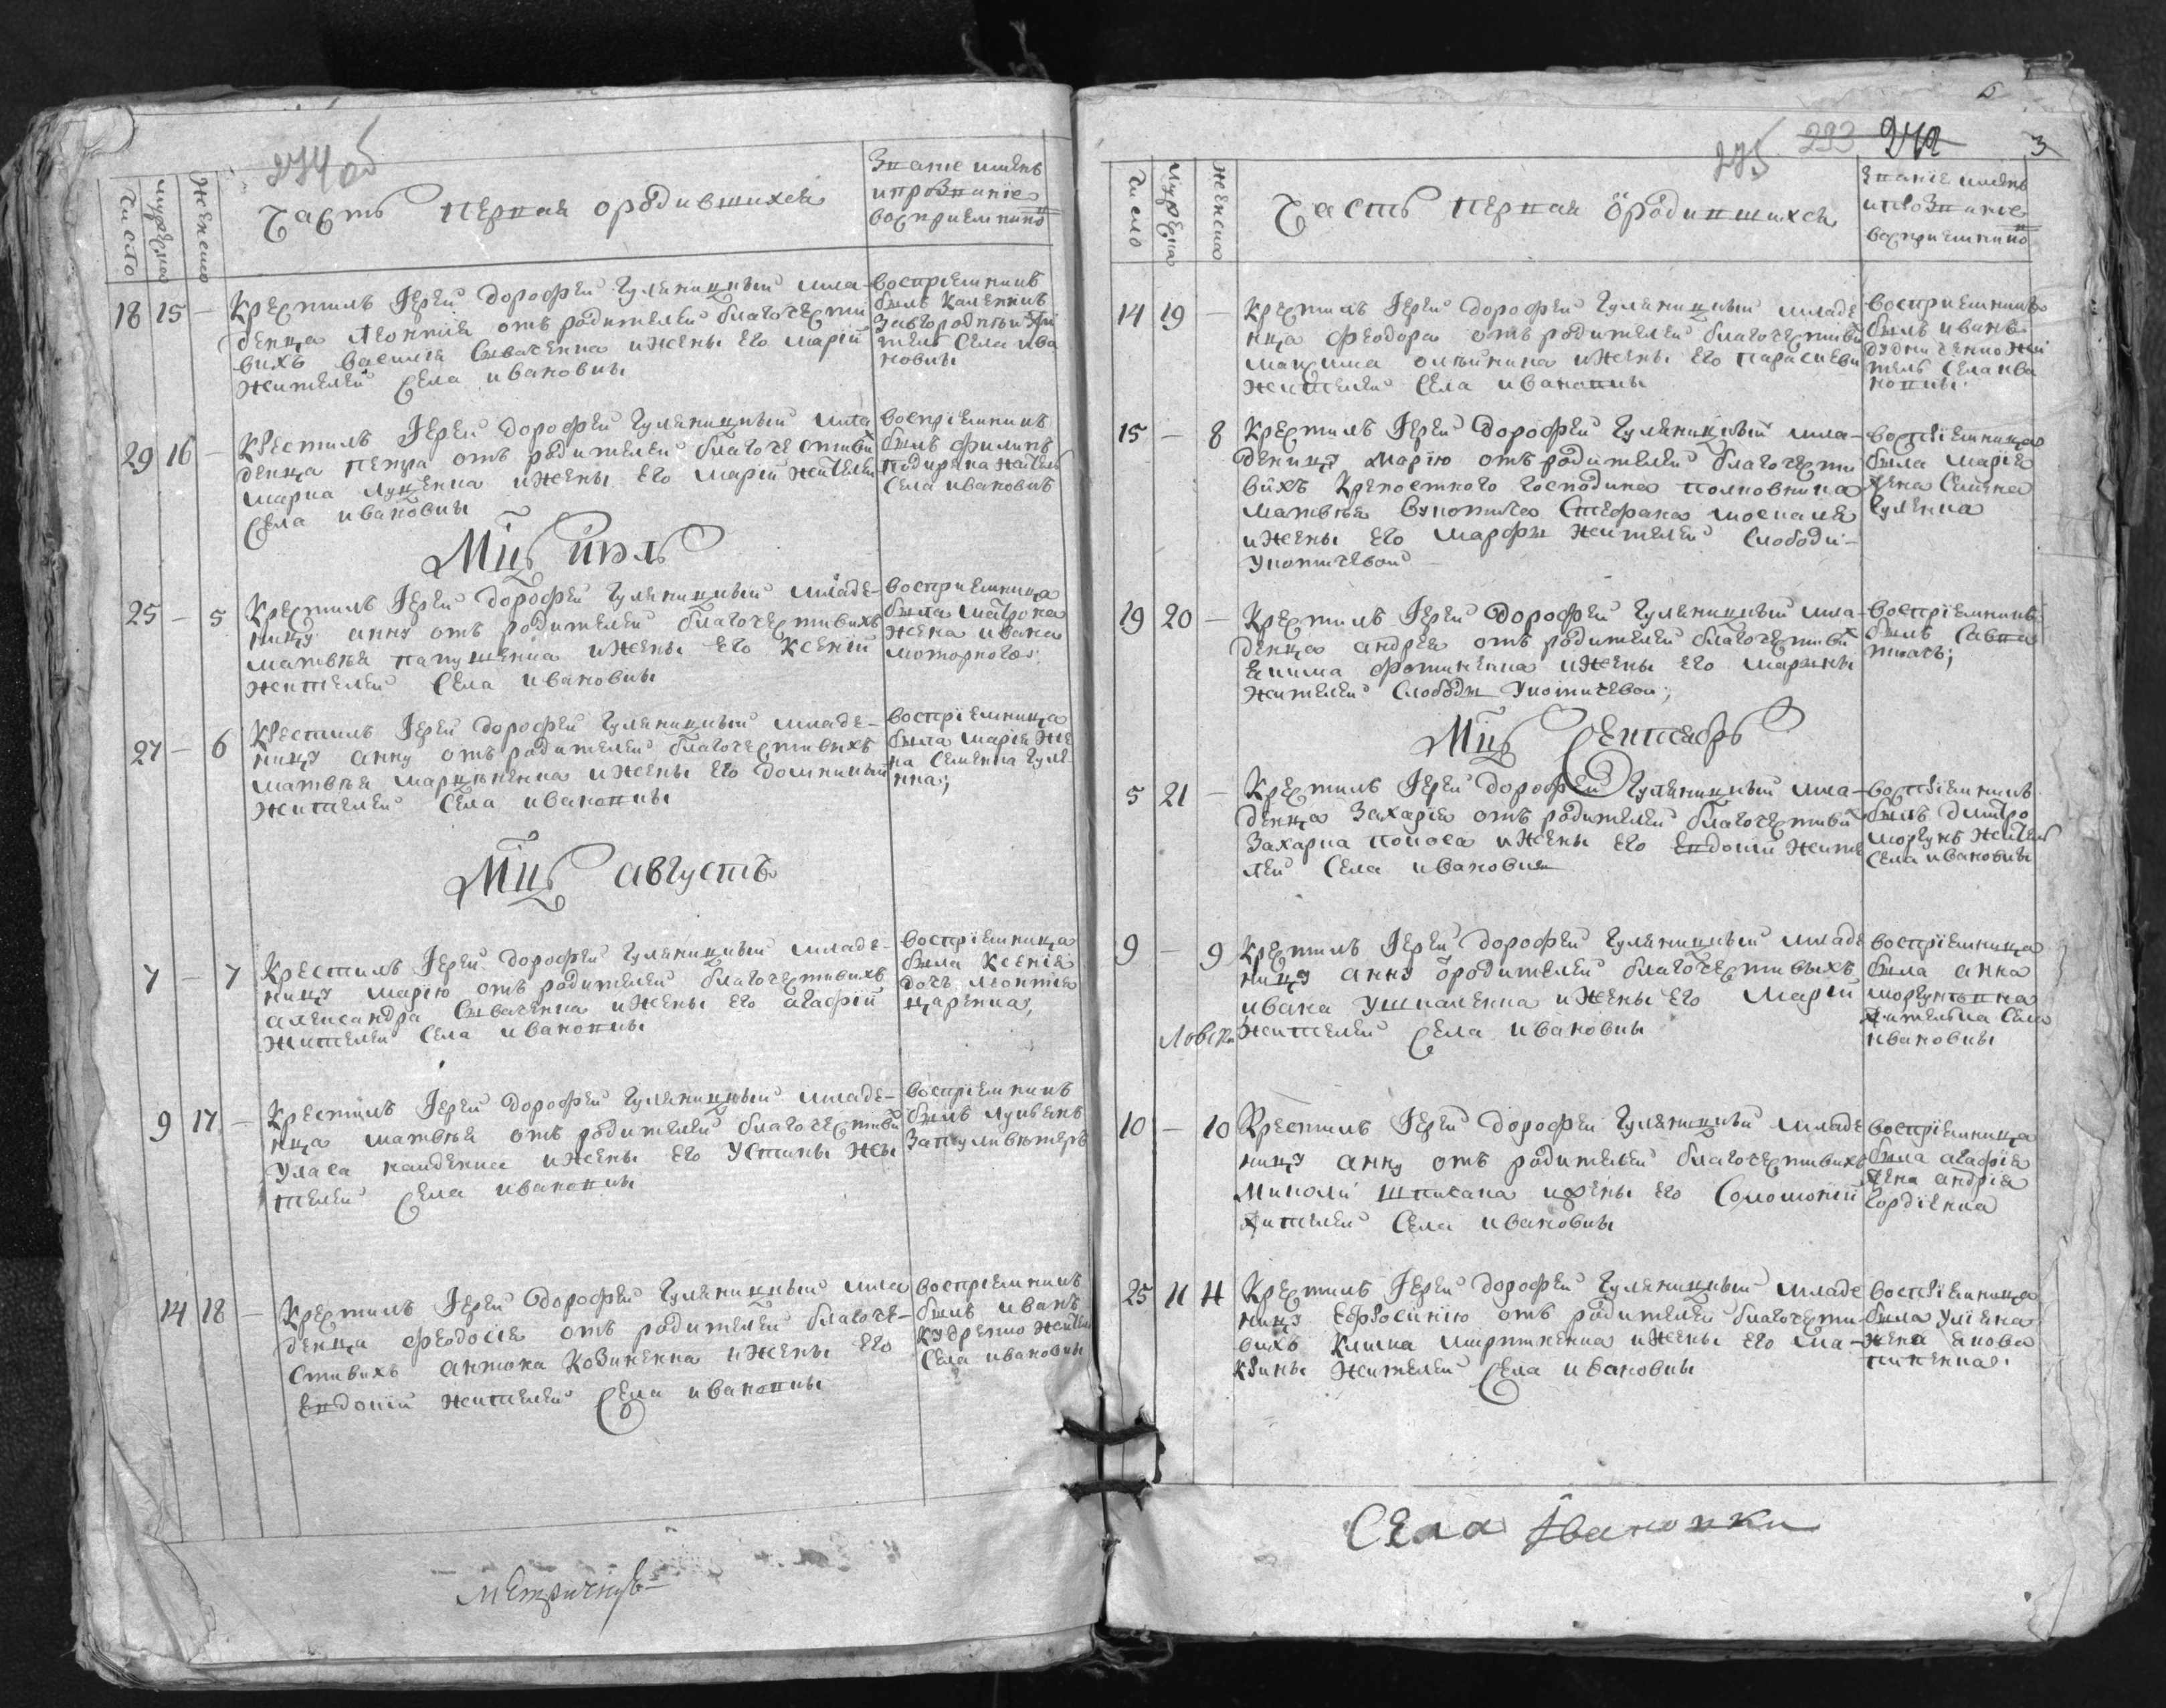 274об
Число
Мужеска
Женско
Часть перная ородившихся
Знате имянь
ипрозвание
восприемнико
18 15 – Крестилъ Іерей дорофей Гуляницкый мла-
денца Леонтія отъ родителей благочести
вихъ василія Сывачєнка ижены его маріи
жителей села ивановки
воспріемникъ
былъ Каленикъ
Завгородній жи
тель села ива
новки
29 16 – Крестилъ Іерей дорофей Гуляницкый мла
денца петра отъ родителей благочестиви
марка Луценка ижены его маріи жителей
села ивановки
воспріемникъ
былъ филипъ
житель
села ивановкъ
Мцъ июль
25 – 5 Крестилъ Іерей дорофей Гуляницкый младе-
ницу анну отъ родителей благочестивихъ
матвѣя папушенка ижены его Ксеніи
жителей села ивановки
восприемница
была матрона
жена ивана
моторного;
27 – 6 Крестилъ Іерей дорофей Гуляницкый младе-
ницу анну отъ родителей благочестивихъ
матвѣя марцѣненка ижены его домникий
жителей села ивановки
воспріемница
была марія же
на семенка гуле
нка;
Мцъ августъ
7 – 7 Крестилъ Іерей дорофей Гуляницкый младе-
ницу марію отъ родителей благочестивихъ
александра Сывачєнка ижены его агафіи
жителей села ивановки
воспріемница
была Ксенія
дочь леонтія
царенка;
9 17 – Крестилъ Іерей дорофей Гуляницкый младе-
нца матвѣя отъ родителей благочестиви
Уласа найденка ижены его Устины жи
телей села ивановки
воспріемникъ
былъ лукьянъ
14 18 – Крестилъ Іерей дорофей Гуляницкый мла
денца феодосія отъ родителей благоче-
стивихъ антона Козиненка ижены его
Евдокіи жителей села ивановки
воспріемникъ
былъ иванъ
кудренко житель
села ивановки
Метричнуѣ
275 293 242 3
Число
Мужеска
женска
Часть перная ородившихся
Званіе имянь
ипрозвание
восприемнико
14 19 – Крестилъ Іерей дорофей Гуляницкый младе
нца феодора отъ родителей благочестиви
мацима олѣйника ижены его параскеви
жителей села ивановки
восприемникъ
былъ иванъ
дудниченко жи
тель села ива
новки.
15 – 8 Крестилъ Іерей дорофей Гуляницкый мла-
деницу марію отъ родителей благочести
вихъ Крепостного господина полковника
матвѣя Вукотича Стефана москаля
ижены его марфы жителей Слободи-
Укотичевой
воспріемница
была марія
жена семена
Гуленка
19 20 – Крестилъ Іерей дорофей Гуляницкый мла-
денца андрея отъ родителей благочестиви
екима фотиненка ижены его марины
жителей Слободы Укотичевой;
воспріемникъ
былъ Савка
ткачъ;
Мцъ Сентябрь
5 21 – Крестилъ Іерей дорофей Гуляницкый мла-
денца Захарія отъ родителей благочестиви
Захарка попова ижены его Евдокіи жите
лей села ивановки
воспріемникъ
былъ дмитро
моргунъ житель
села ивановки
9 – 9 Крестилъ Іерей дорофей Гуляницкый младе
ницу анну ородителей благочестивыхъ
ивана Ушкаленка ижены его маріи
жителей села ивановки
воспріемница
была анна
моргуновна
жителька села
ивановки
Ловски
10 – 10 Крестилъ Іерей дорофей Гуляницкый младе
ницу анну отъ родителей благочестивихъ
Миколи Шпикана ижены его Соломоніи
жителей села ивановки
воспріемница
была агафія
жена андрія
Гордіенка
25 11 11 Крестилъ Іерей дорофей Гуляницкый младе
ницу Ефросинію отъ родителей благочести-
вихъ Клима миртиненка ижены его ма-
крины жителей села ивановки
воспріемница
была улїяна
жена якова
пиненка.
Села Івановки